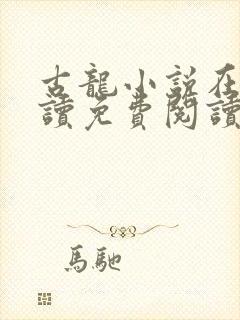 古龍小說在
讀免費閱讀
馬馳